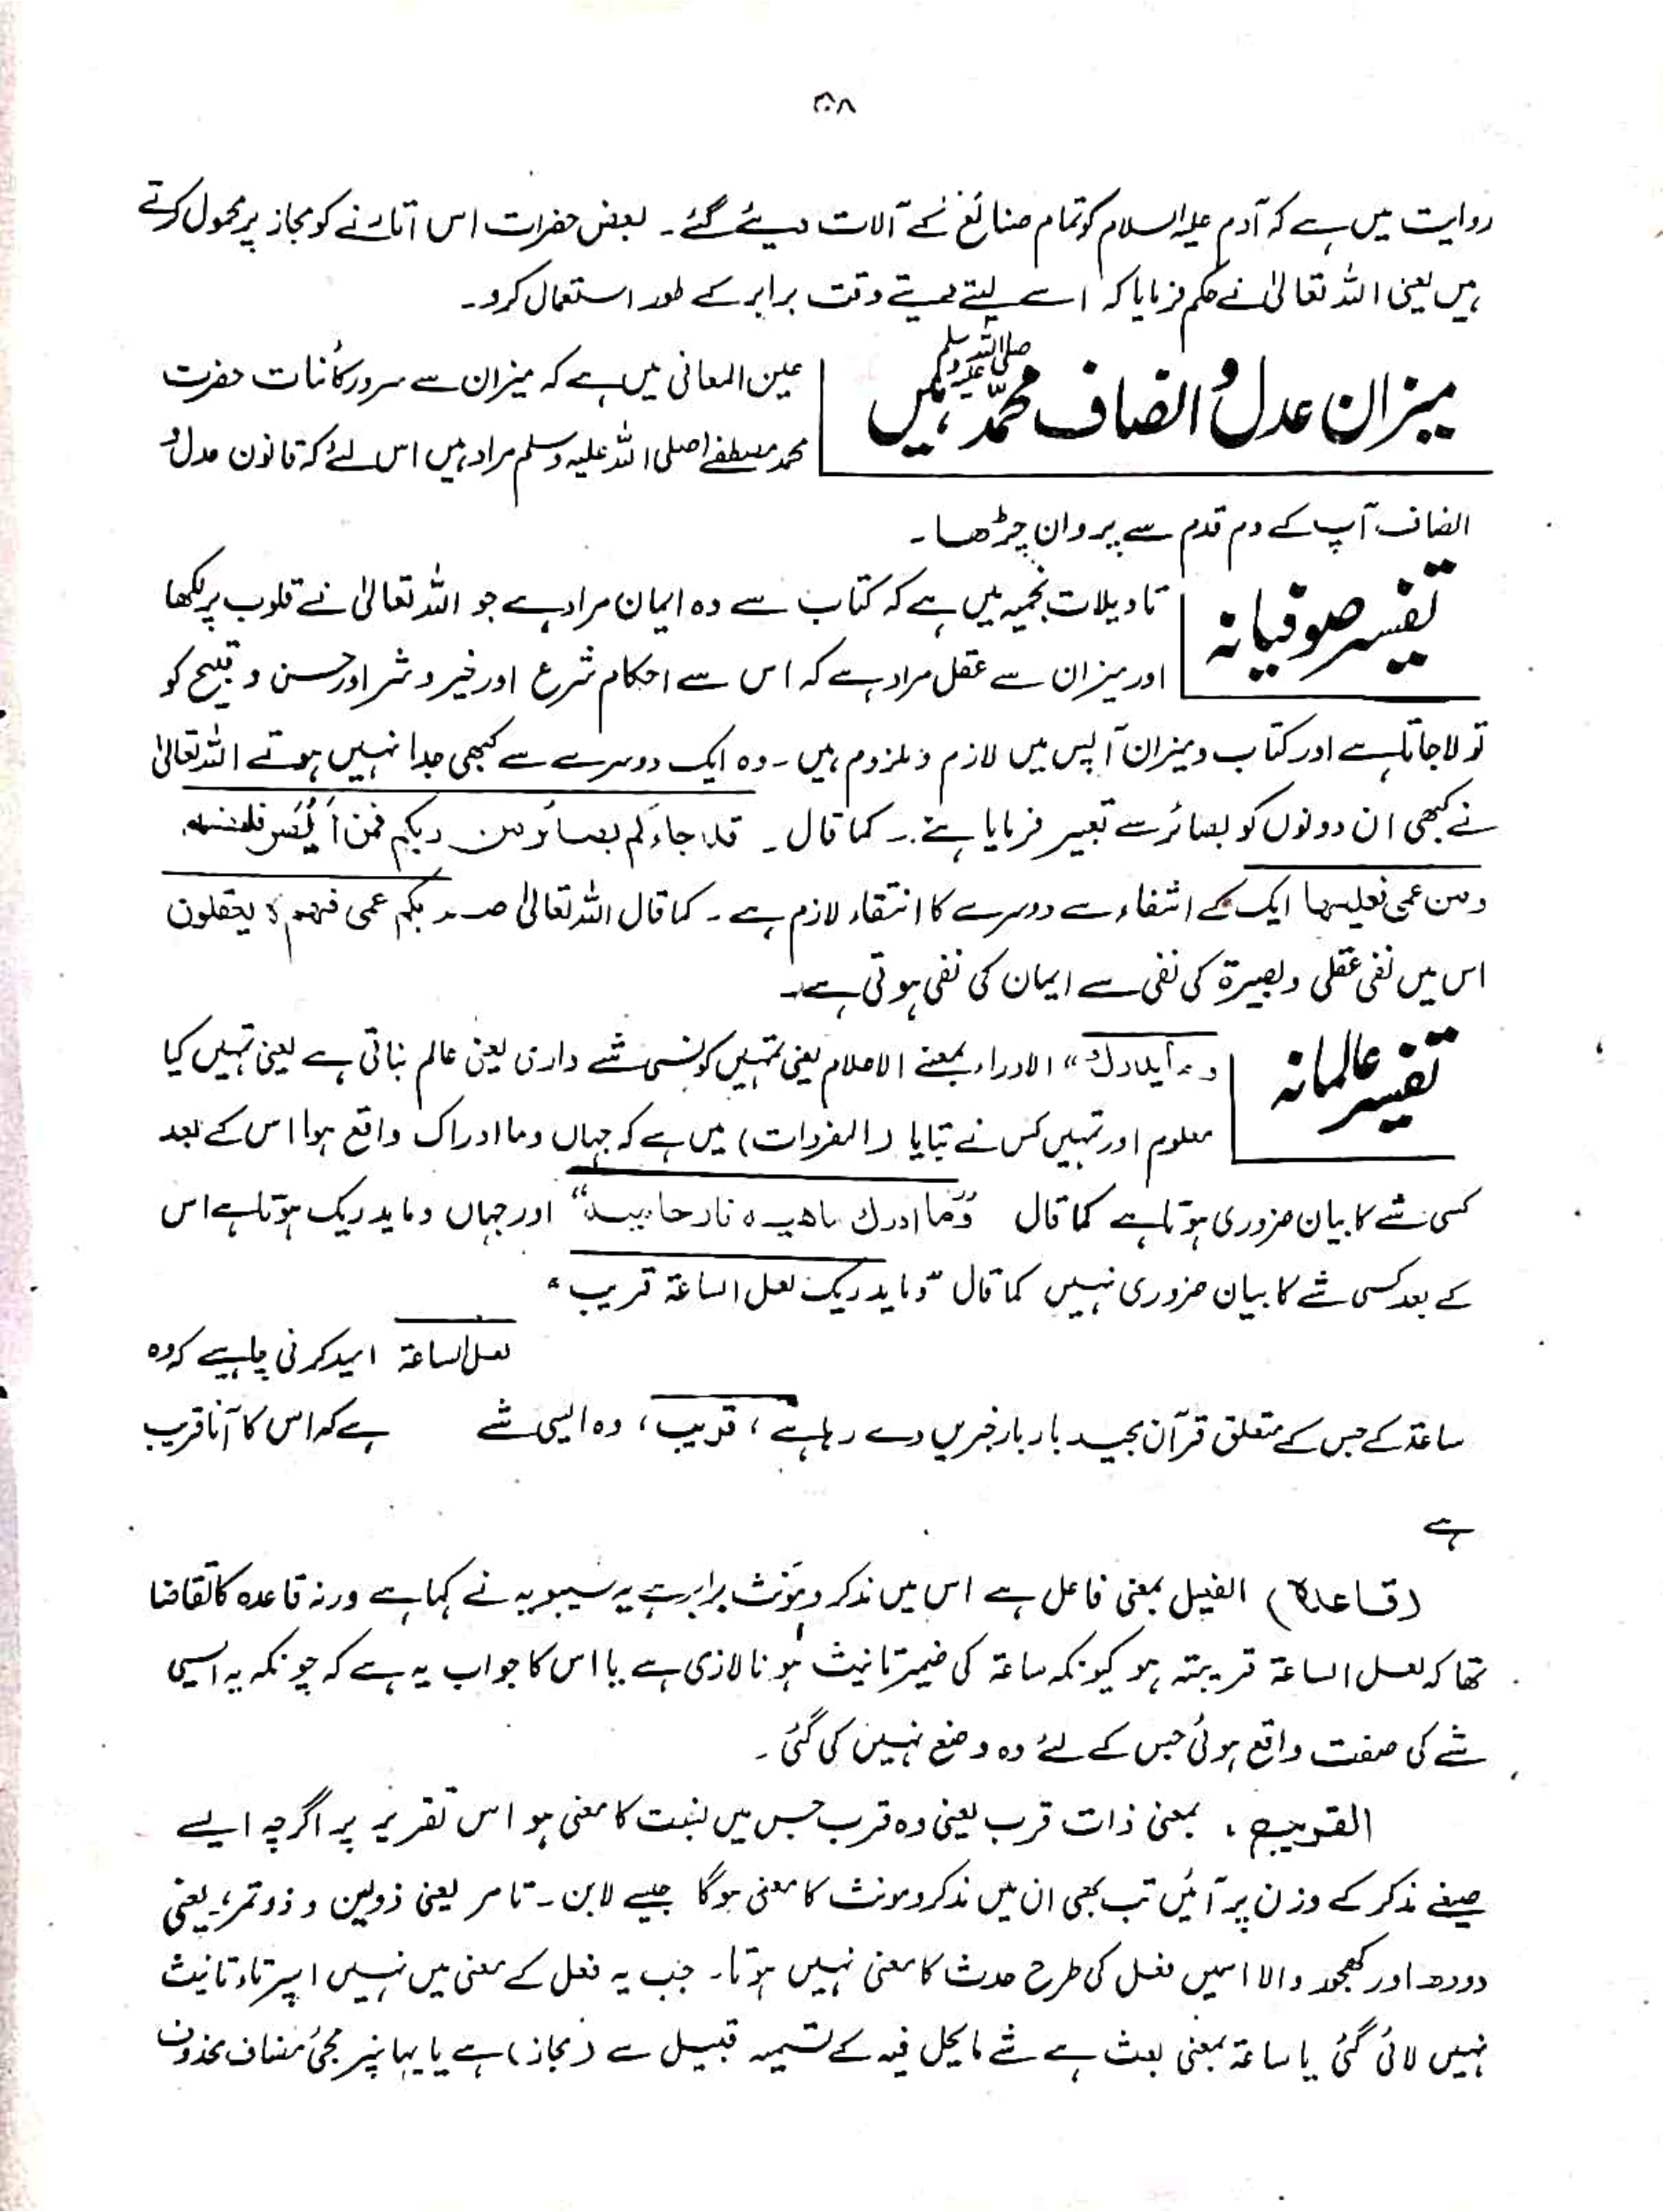 ۵۸
روایت میں ہے کہ آدم علیہ السلام کو تمام صنائع کے آلات دیئے گئے۔ بعض حضرات اس اتارنے کو مجاز پر محمول کرتے
ہیں یعنی اللہ تعالیٰ نے حکم فرمایا کہ اسے لیتے دیتے وقت برابر کے طور استعمال کرو۔
میزان عدل و انصاف محمد صلی اللہ علیہ وسلم ہیں
عین المعانی میں ہے کہ میزان سے سرور کائنات حضرت
محمد مصطفےٰ صلی اللہ علیہ وسلم مراد ہیں اس لئے کہ قانون عدل و
انصاف آپ کے دم قدم سے پروان چڑھا۔
تفسیر صوفیانہ
تاویلات نجمیہ میں ہے کہ کتاب سے وہ ایمان مراد ہے جو اللہ تعالیٰ نے قلوب پر لکھا
اور میزان سے عقل مراد ہے کہ اس سے احکام شرع اور خیر و شر اور حسن و قبیح کو
تولا جاتا ہے اور کتاب و میزان آپس میں لازم و ملزوم ہیں۔ وہ ایک دوسرے سے کبھی جدا نہیں ہوتے اللہ تعالیٰ
نے کبھی ان دونوں کو بصائر سے تعبیر فرمایا ہے۔ کما قال۔ قد جاءکم بصائر من ربکم فمن أبصر فلنفسہ
ومن عمی فعلیہا ایک کے انتفاء سے دوسرے کا انتفاء لازم ہے۔ کما قال اللہ تعالیٰ صم بکم عمی فہم لا یعقلون
اس میں نفی عقلی و بصیرۃ کی نفی سے ایمان کی نفی ہوتی ہے۔
تفسیر عالمانہ
الادراء بمعنے الاعلام یعنی تمہیں کونسی شے داری یعنی عالم بناتی ہے یعنی تمہیں کیا
معلوم اور تمہیں کس نے بتایا (المفردات) میں ہے کہ جہاں وما ادراک واقع ہوا اس کے بعد
کسی شے کا بیان ضروری ہوتا ہے کما قال "وما ادرك ماهيه ہ نار حامیہ" اور جہاں وما یدریک ہوتا ہے اس
کے بعد کسی شے کا بیان ضروری نہیں کما قال "وما یدریک لعل الساعۃ قریب"
لعل الساعۃ امید کرنی چاہیے کہ وہ
ساعۃ کے جس کے متعلق قرآن مجید بار بار خبریں دے رہا ہے، قریب، وہ ایسی شے ہے کہ اس کا آنا قریب
ہے
(قاعدہ) الفعیل بمعنی فاعل ہے اس میں مذکر و مؤنث برابر ہے یہ سیبویہ نے کہا ہے ورنہ قاعدہ کا تقاضا
تھا کہ لعل الساعۃ قریبتہ ہو کیونکہ ساعۃ کی ضمیر تانیث ہونا لازمی ہے یا اس کا جواب یہ ہے کہ چونکہ یہ ایسی
شے کی صفت واقع ہوئی جس کے لئے وہ وضع نہیں کی گئی۔
القریب، بمعنی ذات قرب یعنی وہ قرب جس میں نسبت کا معنی ہو اس تقریر پر اگرچہ ایسے
صیغے مذکر کے وزن پر آئیں تب بھی ان میں مذکر و مونث کا معنی ہوگا جیسے لابن۔ تامر یعنی ذولبن و ذوتمر، یعنی
دودھ اور کھجور والا اسمیں فعل کی طرح حدث کا معنی نہیں ہوتا۔ جب یہ فعل کے معنی میں نہیں اسپر تاء تانیث
نہیں لائی گئی یا ساعۃ بمعنی بعث ہے شے مایحل فیہ کے تسمیہ قبیل سے (مجاز) ہے یا یہاں پر مجئ مضاف محذوف